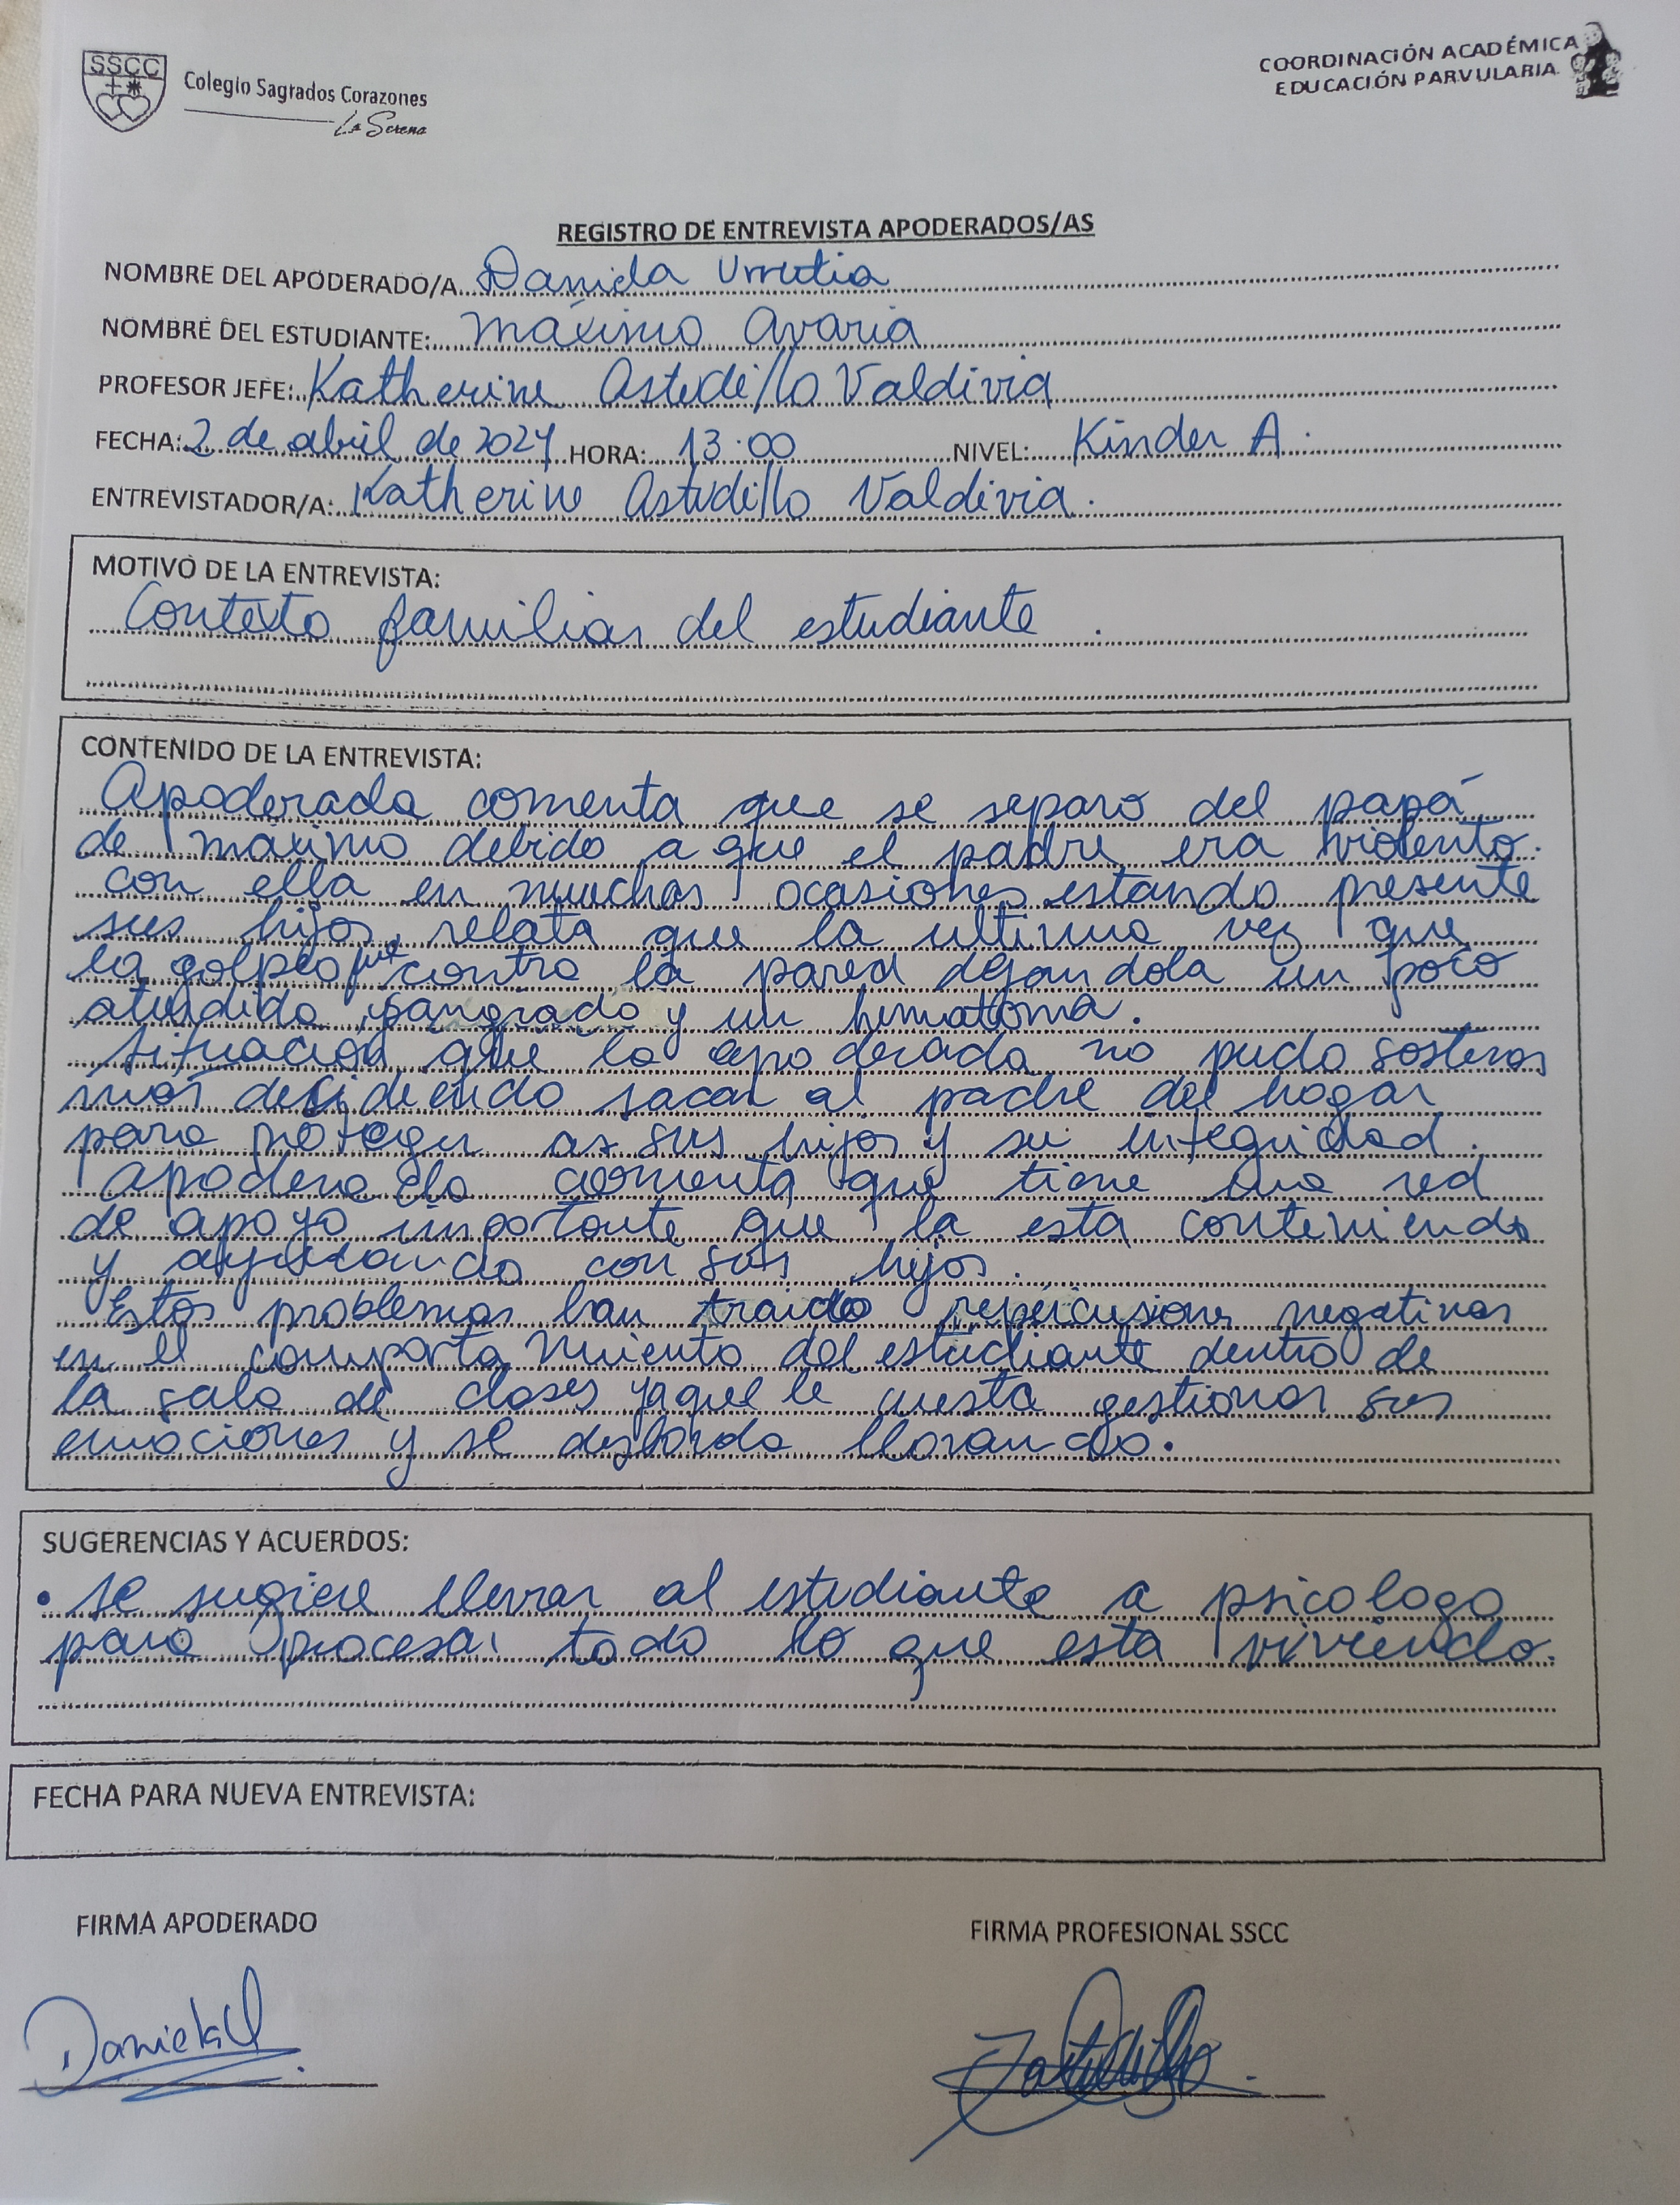 SSCC
Colegio Sagrados Corazones
La Serena
COORDINACIÓN ACADÉMICA
EDUCACIÓN PARVULARIA
REGISTRO DE ENTREVISTA APODERADOS/AS
NOMBRE DEL APODERADO/A Daniela Urrutia
NOMBRE DEL ESTUDIANTE: Máximo Avaria
PROFESOR JEFE: Katherine Astudillo Valdivia
FECHA: 2 de abril de 2024 HORA: 13:00 NIVEL: Kinder A.
ENTREVISTADOR/A: Katherine Astudillo Valdivia.
MOTIVO DE LA ENTREVISTA:
Contexto familiar del estudiante.
CONTENIDO DE LA ENTREVISTA:
Apoderada comenta que se separo del papá
de Máximo debido a que el padre era violento.
con ella en muchas ocasiones estando presente
sus hijos, relata que la ultima vez que
la golpeo fue contra la pared dejandola un poco
aturdida, sangrado y un hematoma.
Situación que la apoderada no pudo sostener
mas decidiendo sacar al padre del hogar
para proteger a sus hijos y su integridad.
Apoderada comenta que tiene una red
de apoyo importante que la esta conteniendo
y ayudando con sus hijos.
Estos problemas han traido repercusiones negativas
en el comportamiento del estudiante dentro de
la sala de clases ya que le cuesta gestionar sus
emociones y se desborda llorando.
SUGERENCIAS Y ACUERDOS:
• Se sugiere llevar al estudiante a psicologo
para procesar todo lo que esta viviendo.
FECHA PARA NUEVA ENTREVISTA:
FIRMA APODERADO FIRMA PROFESIONAL SSCC
Daniela U